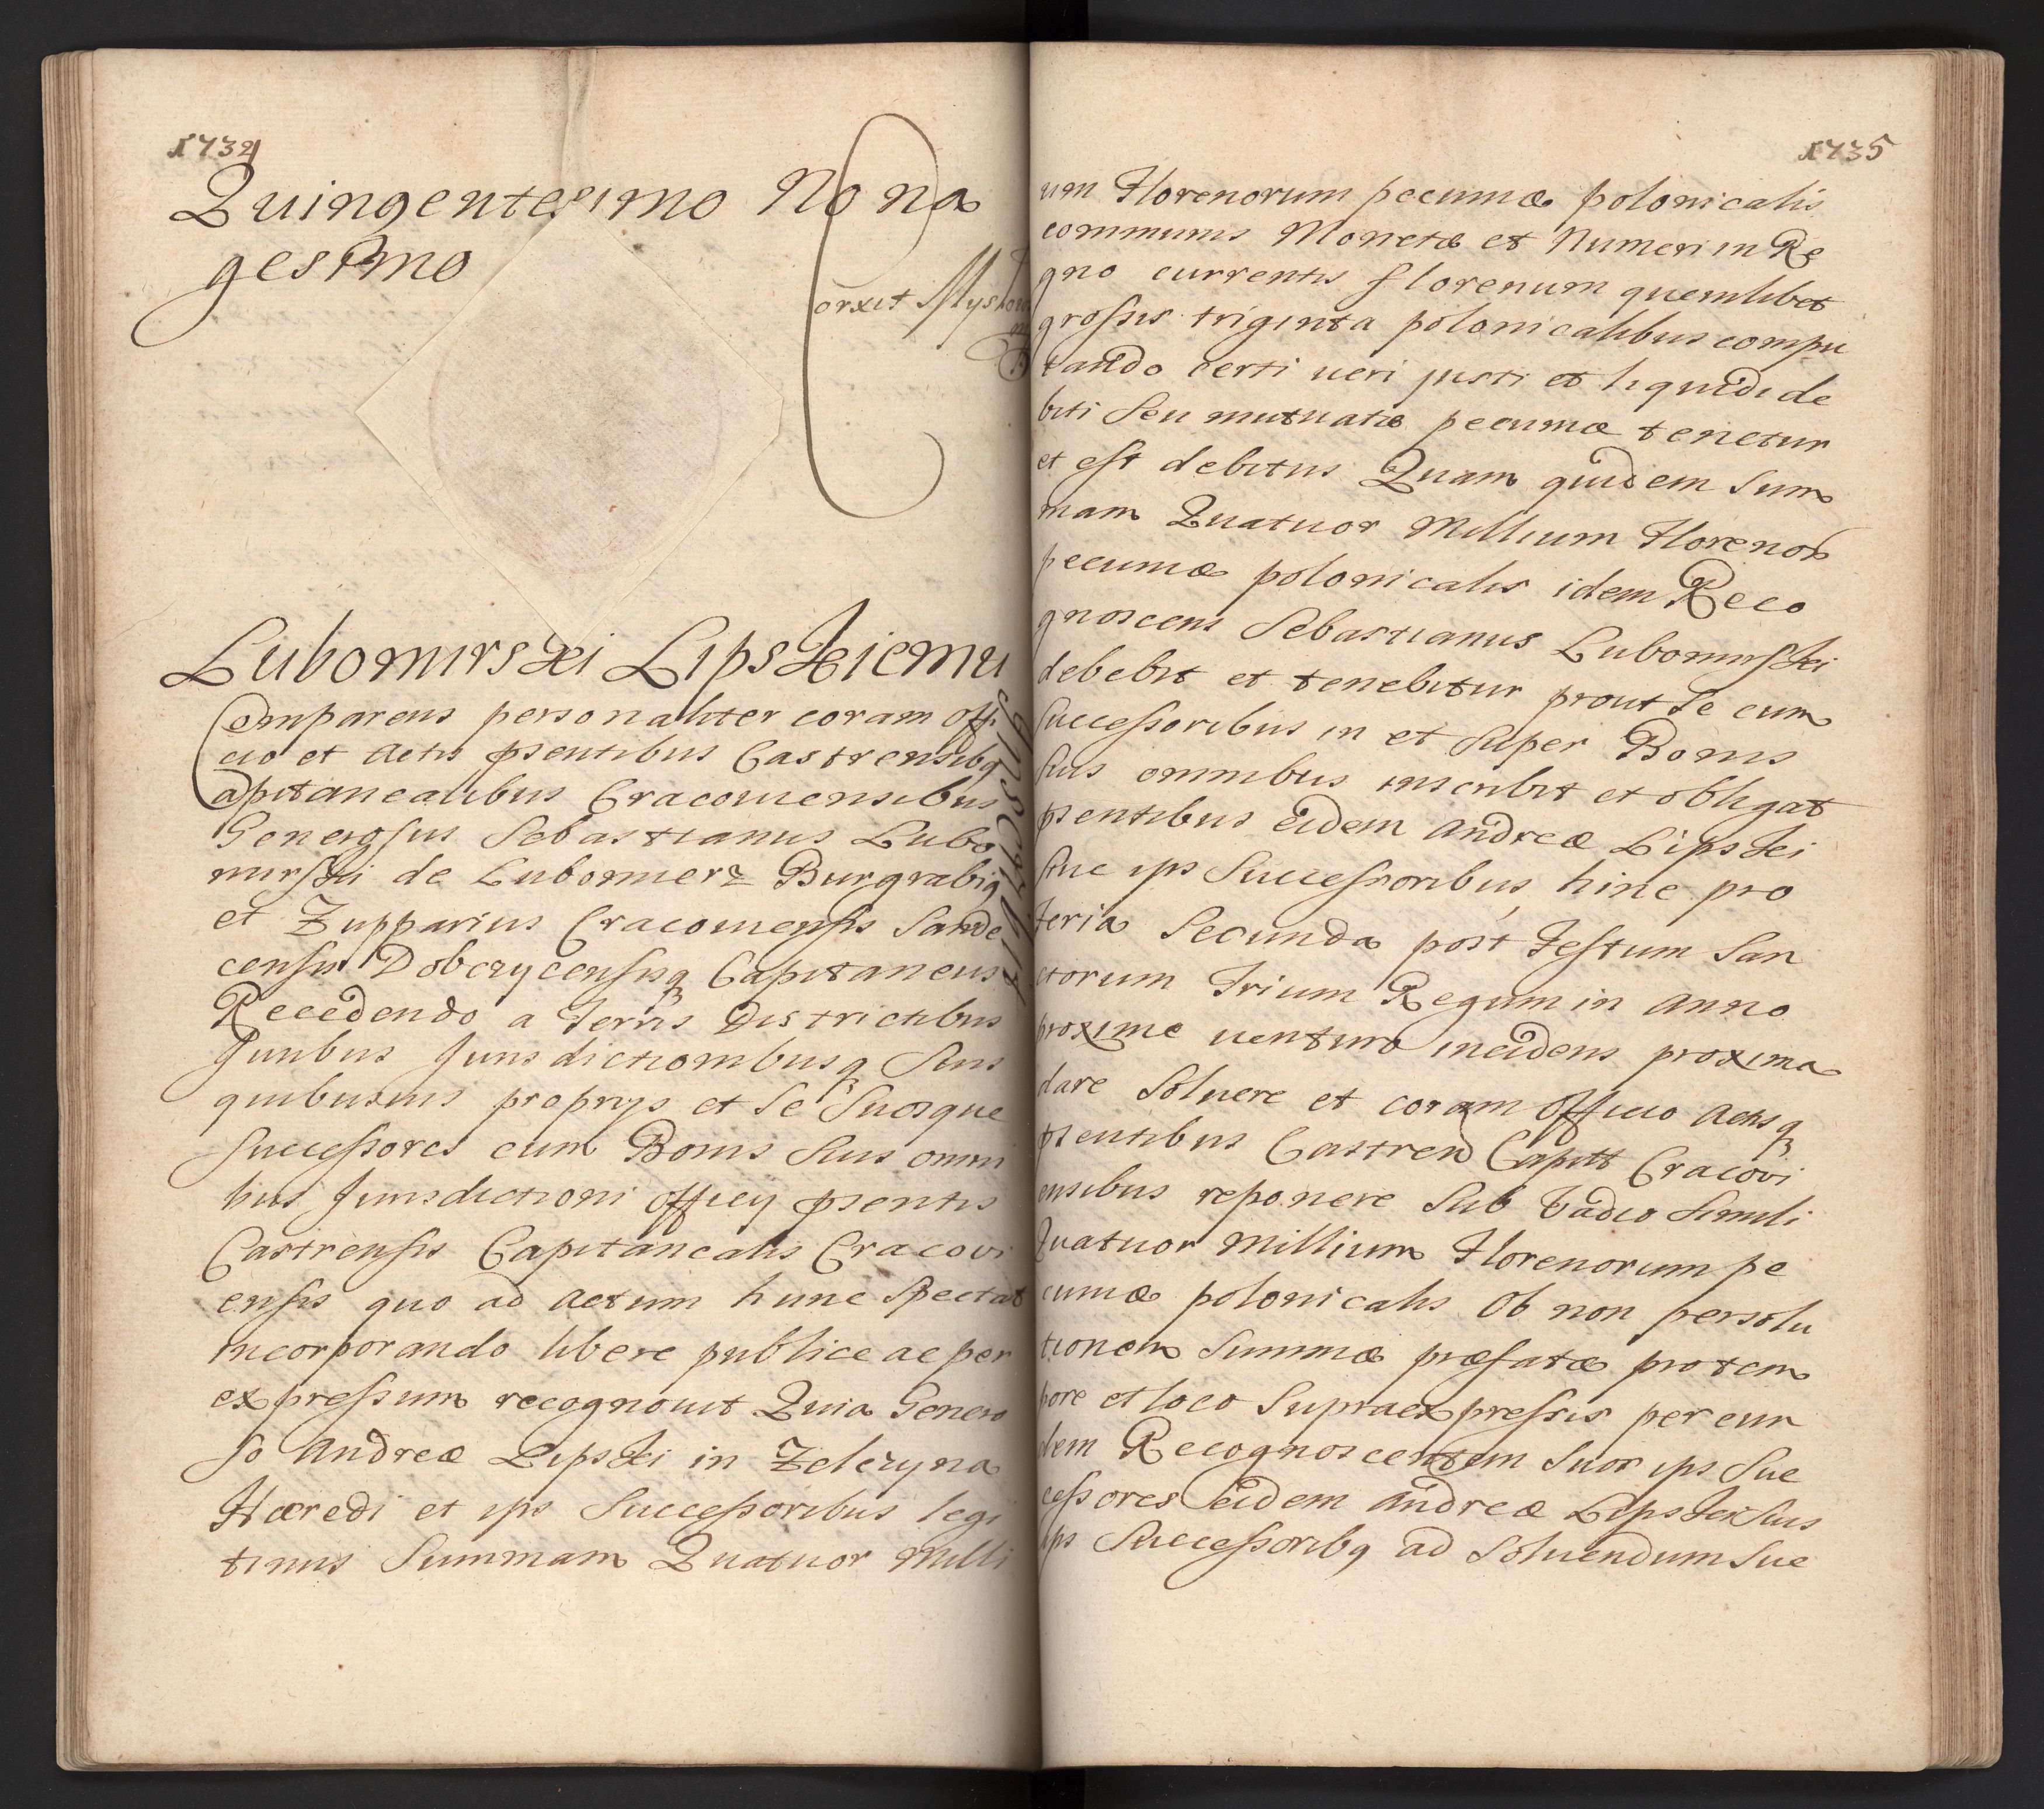 1734
Quingentesimo Nona
gesimo
orxit Mysz
Lubomirski Lipskiemu
Inscribit
Comparens personaliter coram offi
cio et Actis pñtibus Castrensibq
Capitanealibus Cracouiensibus
Generosus Sebastianus Lubo
mirski de Lubomierz Burgrabiq
et Zupparius Cracouiensis Sande
censis Dobczycensisq Capitaneus
Recedendo a Terris Districtibus
Juribus Jurisdictionibusq Suis
quibusuis proprijs et Se Suosque
Successores cum Bonis Suis omni
bus Jurisdictioni officij pñtis
Castrensis Capitanealis Cracovi
ensis quo ad Actum hunc Spectat
incorporando libere publice ac per
expressum recognouit Quia Genero
so Andreæ Lipski in Zelczyna
Hæredi et ips Successoribus legi
timis Summam Quatuor Milli
1735
um Florenorum pecuniæ polonicalis
communis Monetæ et Numeri in Re
gno currentis florenum quemlibet
grossis triginta polonicalibus compu
tando certi ueri justi et liquidi de
biti Seu mutuatæ pecuniæ tenetur
et est debitus Quam quidem Sum
mam Quatuor Millium Florenor
pecuniæ polonicalis idem Reco
gnoscens Sebastianus Lubomirski
debebit et tenebitur prout Se cum
Successoribus in et Super Bonis
Suis omnibus inscribit et obligat
pñtibus eidem Andreæ Lipski
Siue ips Successoribus, hinc pro
Feria Secunda post Festum San
ctorum Trium Regum in Anno
proxime uenturo incidens proxima
dare Soluere et coram Officio Actisq
pñtibus Castren Capitt Cracovi
ensibus reponere Sub Vadio Simili
Quatuor Millium Florenorum pe
cuniæ polonicalis Ob non persolu
tionem Summæ præfatæ pro tem
pore et loco Supraexpressis per eun
dem Recognoscentem Suos ips Suc
cessores eidem Andreæ Lipski Suis
ips Successoribq ad Soluendum Suc